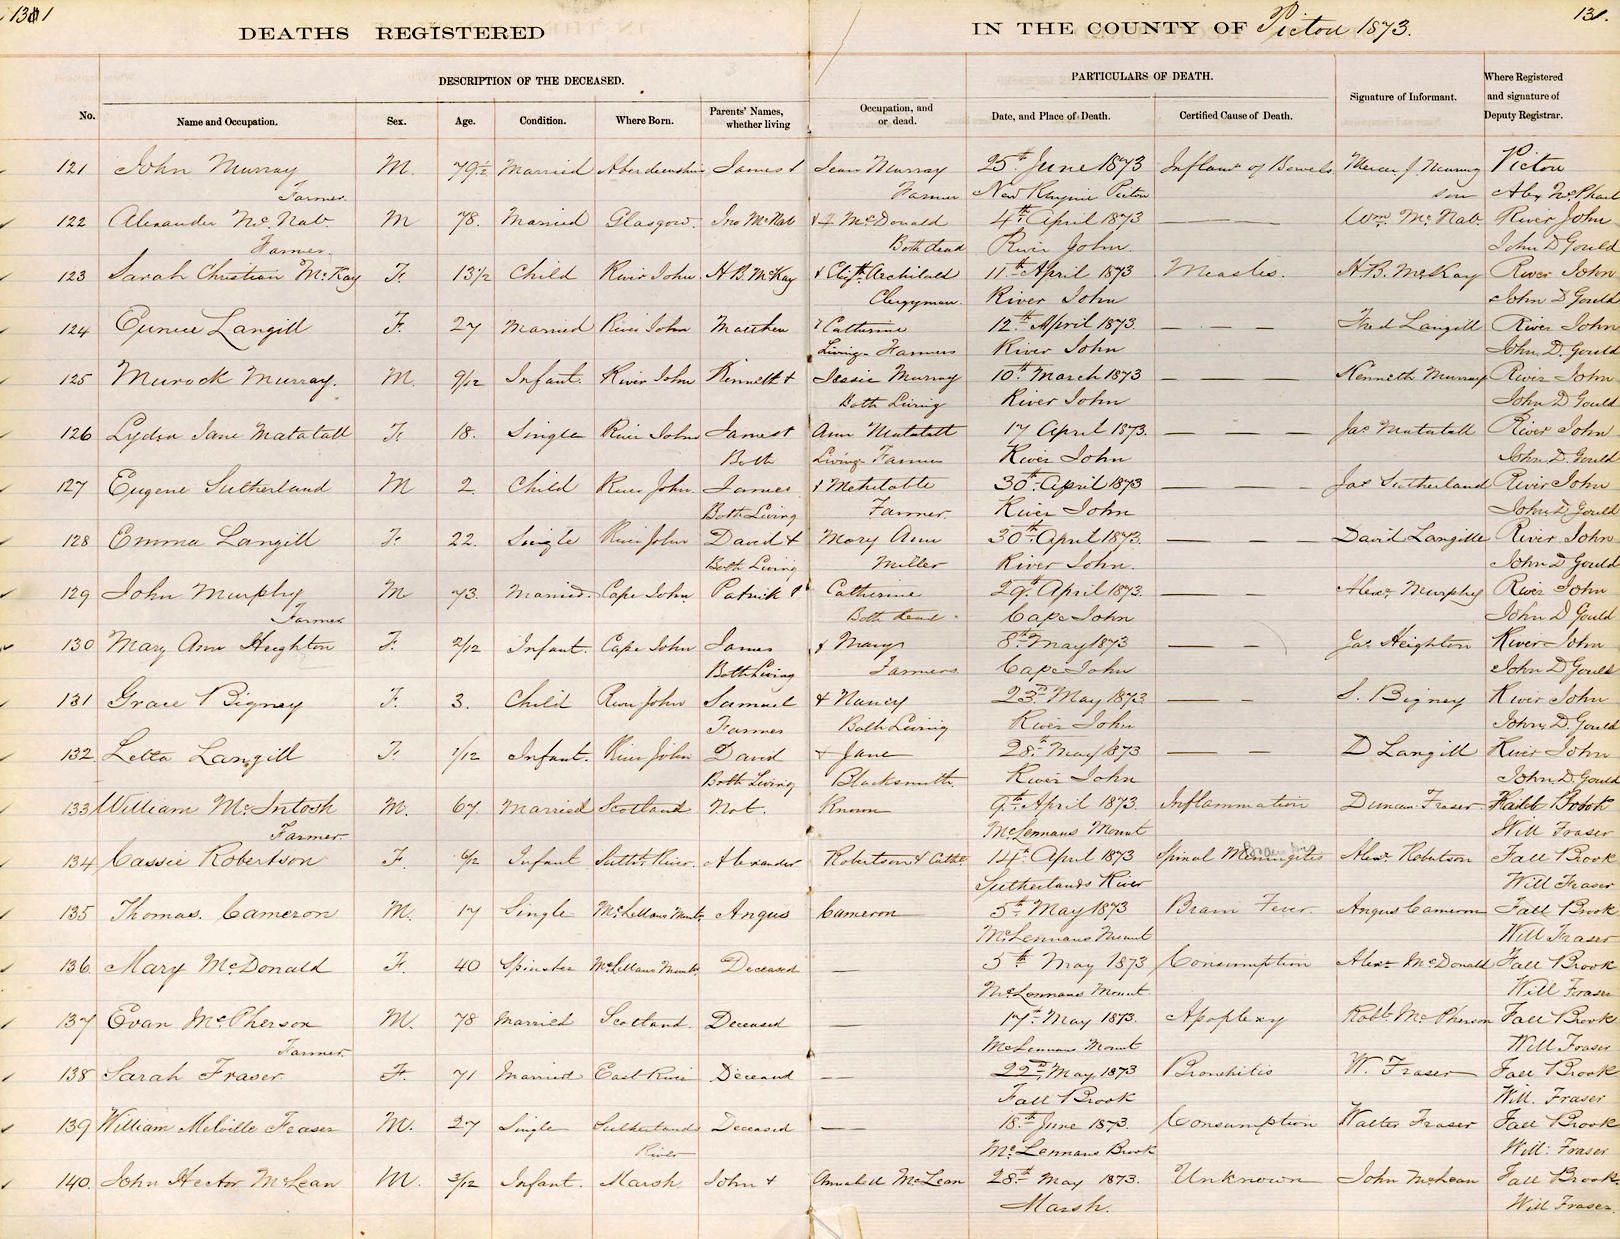 131
DEATHS REGISTERED
IN THE COUNTY OF Pictou 1873.
131.
DESCRIPTION OF THE DECEASED.
PARTICULARS OF DEATH.
No.
Name and Occupation.
Sex.
Age.
Condition.
Where Born.
Parents' Names, whether living
Occupation, and or dead.
Date, and Place of Death.
Certified Cause of Death.
Signature of Informant.
Where Registered and signature of Deputy Registrar.
121 John Murray M. 79½ Married Aberdeenshire James & Jean Murray 25th June 1873 Inflamn of Bowels Murray Pictou
Farmer Farmer New Pictou son Alex McPhail
122 Alexander McNab M 78. Married Glasgow. Jno McNab & McDonald 4th April 1873 — — — Wm. McNab River John
Farmer. Both dead River John. John D Gould
123 Sarah Christian McKay F. 13½ Child River John. H B. McKay & Archibald 11th April 1873 Measles. H. B. McKay River John
Clergyman. River John John D Gould
124 Eunice Langill F. 27 Married River John Matthew & Catherine 12th April 1873 — — — Fred Langill River John
Living - Farmers River John John. D. Gould
125 Murock Murray. M. 9/12 Infant. River John Kenneth & Jessie Murray 10th March 1873 — — — — Kenneth Murray River John
Both Living River John John D Gould
126 Lydia Jane Matatall F. 18. Single River John James & Ann Matatall 17 April 1873. — — — — Jas Matatall River John
Both Living - Farmer River John John D. Gould
127 Eugene Sutherland M 2. Child River John. James & Mehitable 30th April 1873 — — — Jas Sutherland River John
Both Living Farmer. River John John D. Gould
128 Emma Langill F. 22. Single River John David & Mary Ann 30th April 1873. — — — — David Langille River John
Both Living Miller River John. John D Gould
129 John Murphy M 73. Married. Cape John. Patrick & Catherine 29th April 1873. — — — Alexr Murphy River John
Farmer Both dead. Cape John John D Gould
130 Mary Ann Heighton F. 2/12 Infant. Cape John James & Mary 8th May 1873 — — Jas Heighton River John
Both Living Farmers. Cape John John D Gould
131 Grace Bigney F. 3. Child River John Samuel & Nancy 23d May 1873. — — — S. Bigney River John
Farmer Both Living River John John. D. Gould
132. Letta Langill F. 1/12 Infant. River John David & Jane 28th May 1873 — — — D Langill River John
Both Living Blacksmith. River John John. D. Gould
133 William McIntosh M. 67. Married Scotland Not. Known 9th April 1873. Inflammation Duncan Fraser Fall Brook
Farmer. McLennans Mount Will Fraser
134 Cassie Robertson F. Infant Suthds River. Alexander Robertson & Cathe 14th April 1873 Spinal Meningitis Alexr Robertson Fall Brook
Sutherlands River Will Fraser
135 Thomas. Cameron M. 17 Single McLellans Mount. Angus Cameron 5th May 1873 Brain Fever. Angus Cameron Fall Brook
McLennans Mount Will Fraser
136. Mary McDonald F. 40 Spinster McLellans Mount. Deceased — 5th May 1873 Consumption Alexr McDonald Fall Brook
McLennans Mount. Will Fraser
137 Evan McPherson M. 78 Married Scotland. Deceased — 17th May 1873. Apoplexy Robt McPherson Fall Brook
Farmer. McLennans Mount Will Fraser
138 Sarah Fraser. F. 71 Married East River Deceased — 22d May 1873 Bronchitis W. Fraser Fall Brook
Fall Brook Will. Fraser
139 William Melville Fraser M. 27 Single Sutherlands Deceased — 18th June 1873. Consumption Walter Fraser Fall Brook
River McLennans Brook Will: Fraser
140. John Hector McLean M. 3/12 Infant. Marsh. John & Annabell McLean 28th May 1873. Unknown John McLean Fall Brook.
Marsh. Will Fraser.